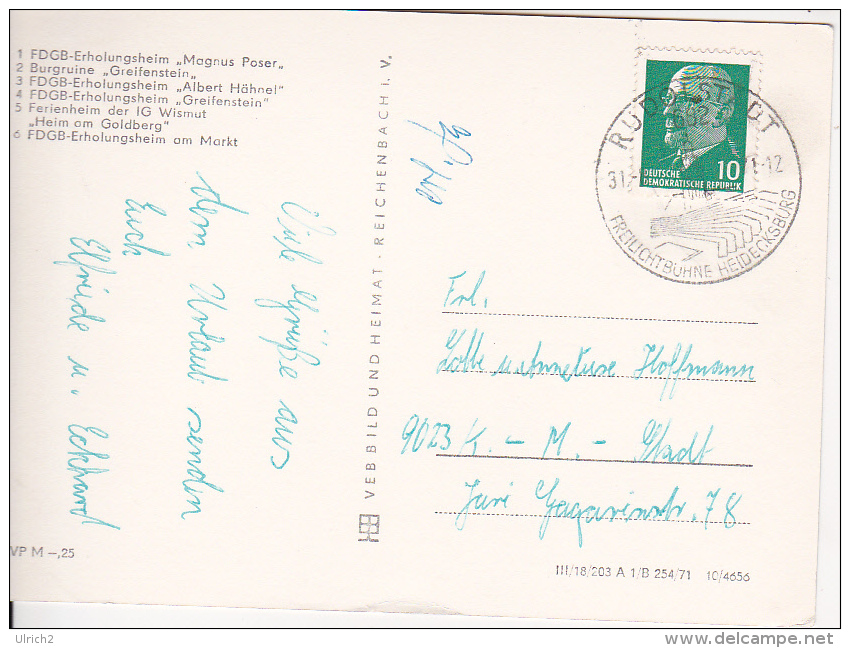 1 FDGB-Erholungsheim „Magnus Poser„
2 Burgruine „Greifenstein„
3 FDGB-Erholungsheim „Albert Hähnel“
4 FDGB-Erholungsheim „Greifenstein“
5 Ferienheim der IG Wismut
„Heim am Goldberg“
6 FDGB-Erholungsheim am Markt
Viele Grüße aus
dem Urlaub senden
Euch
Elfriede u. Eckhard
VP M –,25
VEB BILD UND HEIMAT · REICHENBACH i. V.
RUDOLSTADT
FREILICHTBÜHNE HEIDECKSBURG
10
DEUTSCHE
DEMOKRATISCHE REPUBLIK
Frl.
Lotte u. Anneliese Hoffmann
9023 K. – M. – Stadt
Juri Gagarinstr. 78
III/18/203 A 1/B 254/71 10/4656
Ulrich2
www.delcampe.net